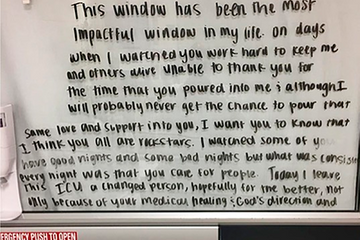 This window has been the most
impactful window in my life. on days
when I watched you work hard to keep me
and others alive unable to thank you for
the time that you poured into me & although I
will probably never get the chance to pour that
same love and support into you, I want you to know that
I think you all are rockstars. I watched some of you
have good nights and some bad nights but what was consis
every night was that you care for people. Today I leave
this ICU a changed person, hopefully for the better, not
only because of your medical healing & God's direction and
EMERGENCY PUSH TO OPEN